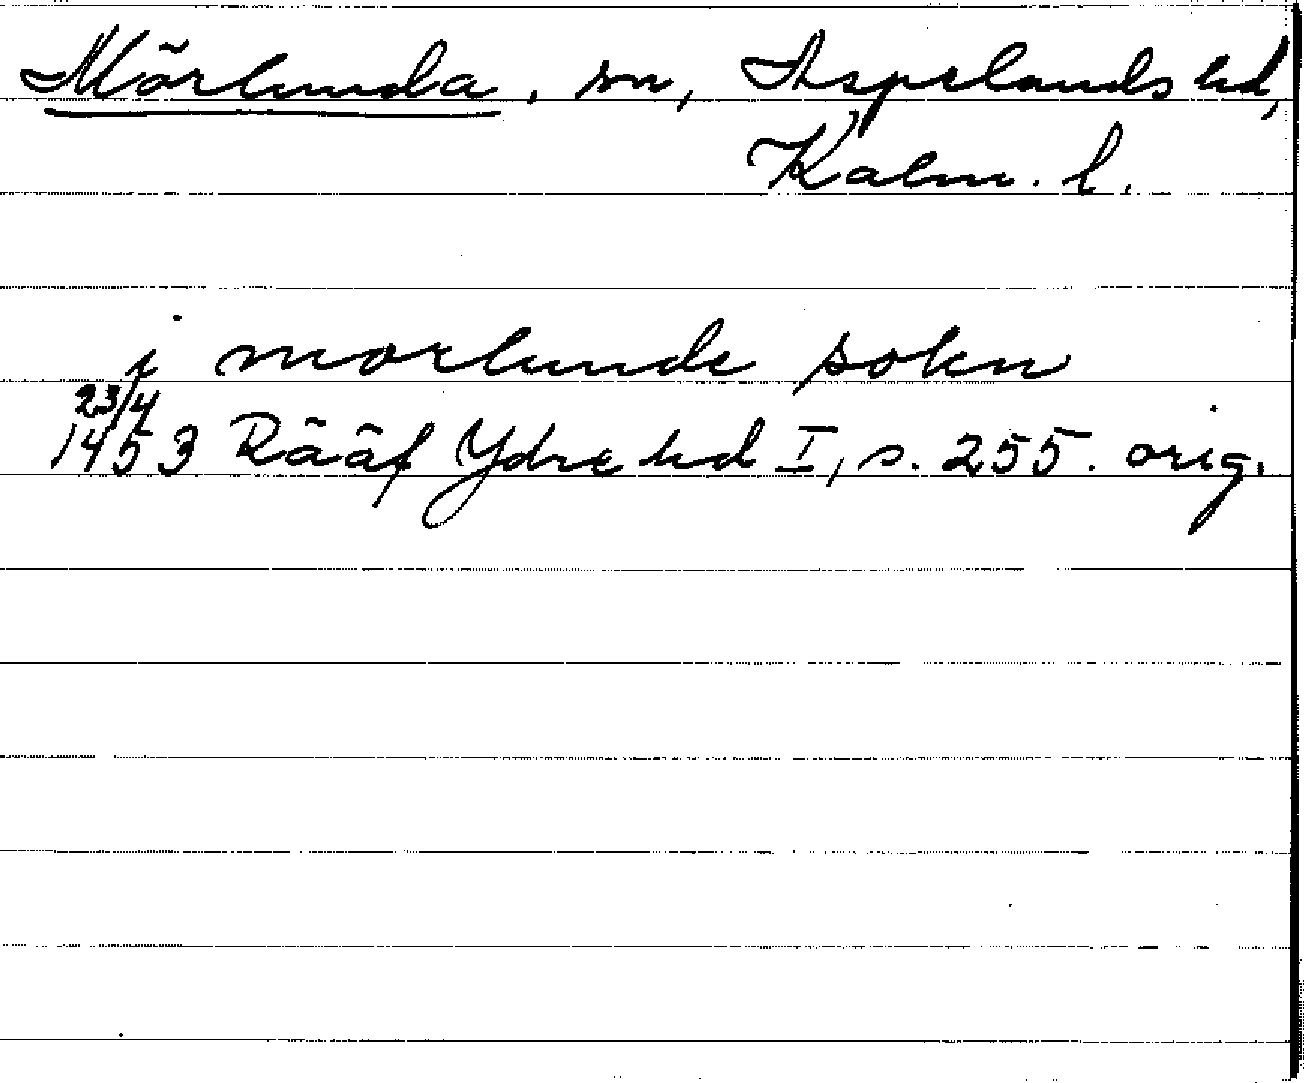 Mörlunda, sn, Aspelands hd,
Kalm. l.
i morlunde sokn
23/4
1453 Rääf Ydre hd I, s. 255. orig.